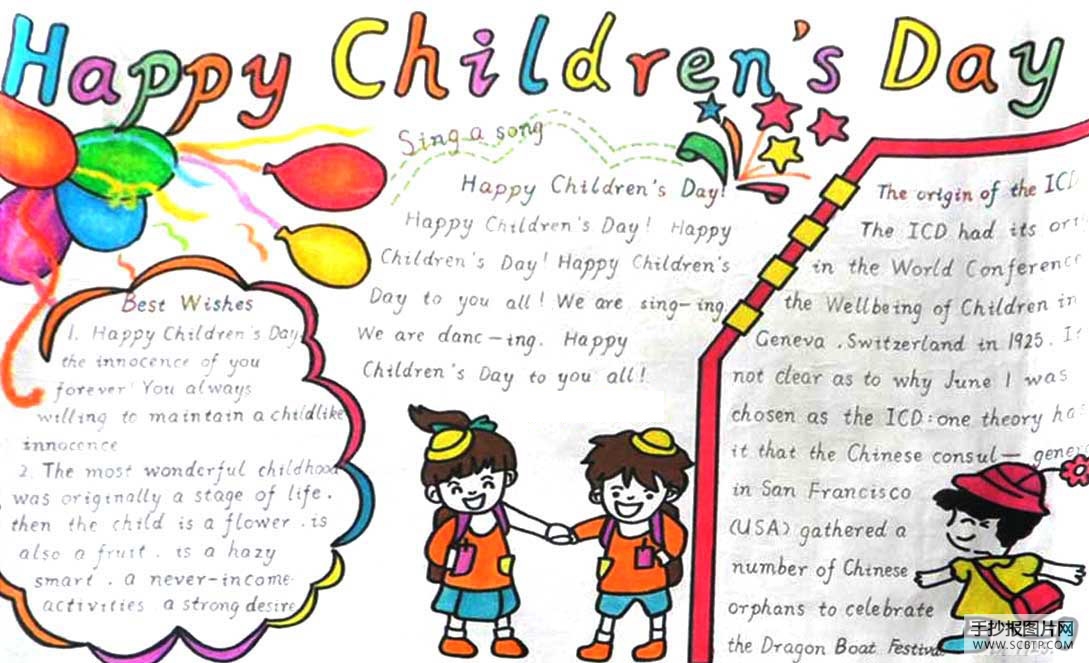 Happy Children's Day
Best Wishes
1. Happy Children's Day
the innocence of you
forever! You always
willing to maintain a childlike
innocence
2. The most wonderful childhood
was originally a stage of life.
then the child is a flower . is
also a fruit . is a hazy
smart . a never-income
activities a strong desire
Sing a song
Happy Children's Day!
Happy Children's Day! Happy
Children's Day! Happy Children's
Day to you all! We are sing-ing.
We are danc-ing. Happy
Children's Day to you all!
The origin of the ICD
The ICD had its
in the World Conference
the Wellbeing of Children in
Geneva , Switzerland in 1925.
not clear as to why June 1 was
chosen as the ICD: one theory has
it that the Chinese consul-
in San Francisco
(USA) gathered a
number of Chinese
orphans to celebrate
the Dragon Boat Festival
手抄报图片网
WWW.SCBTP.COM